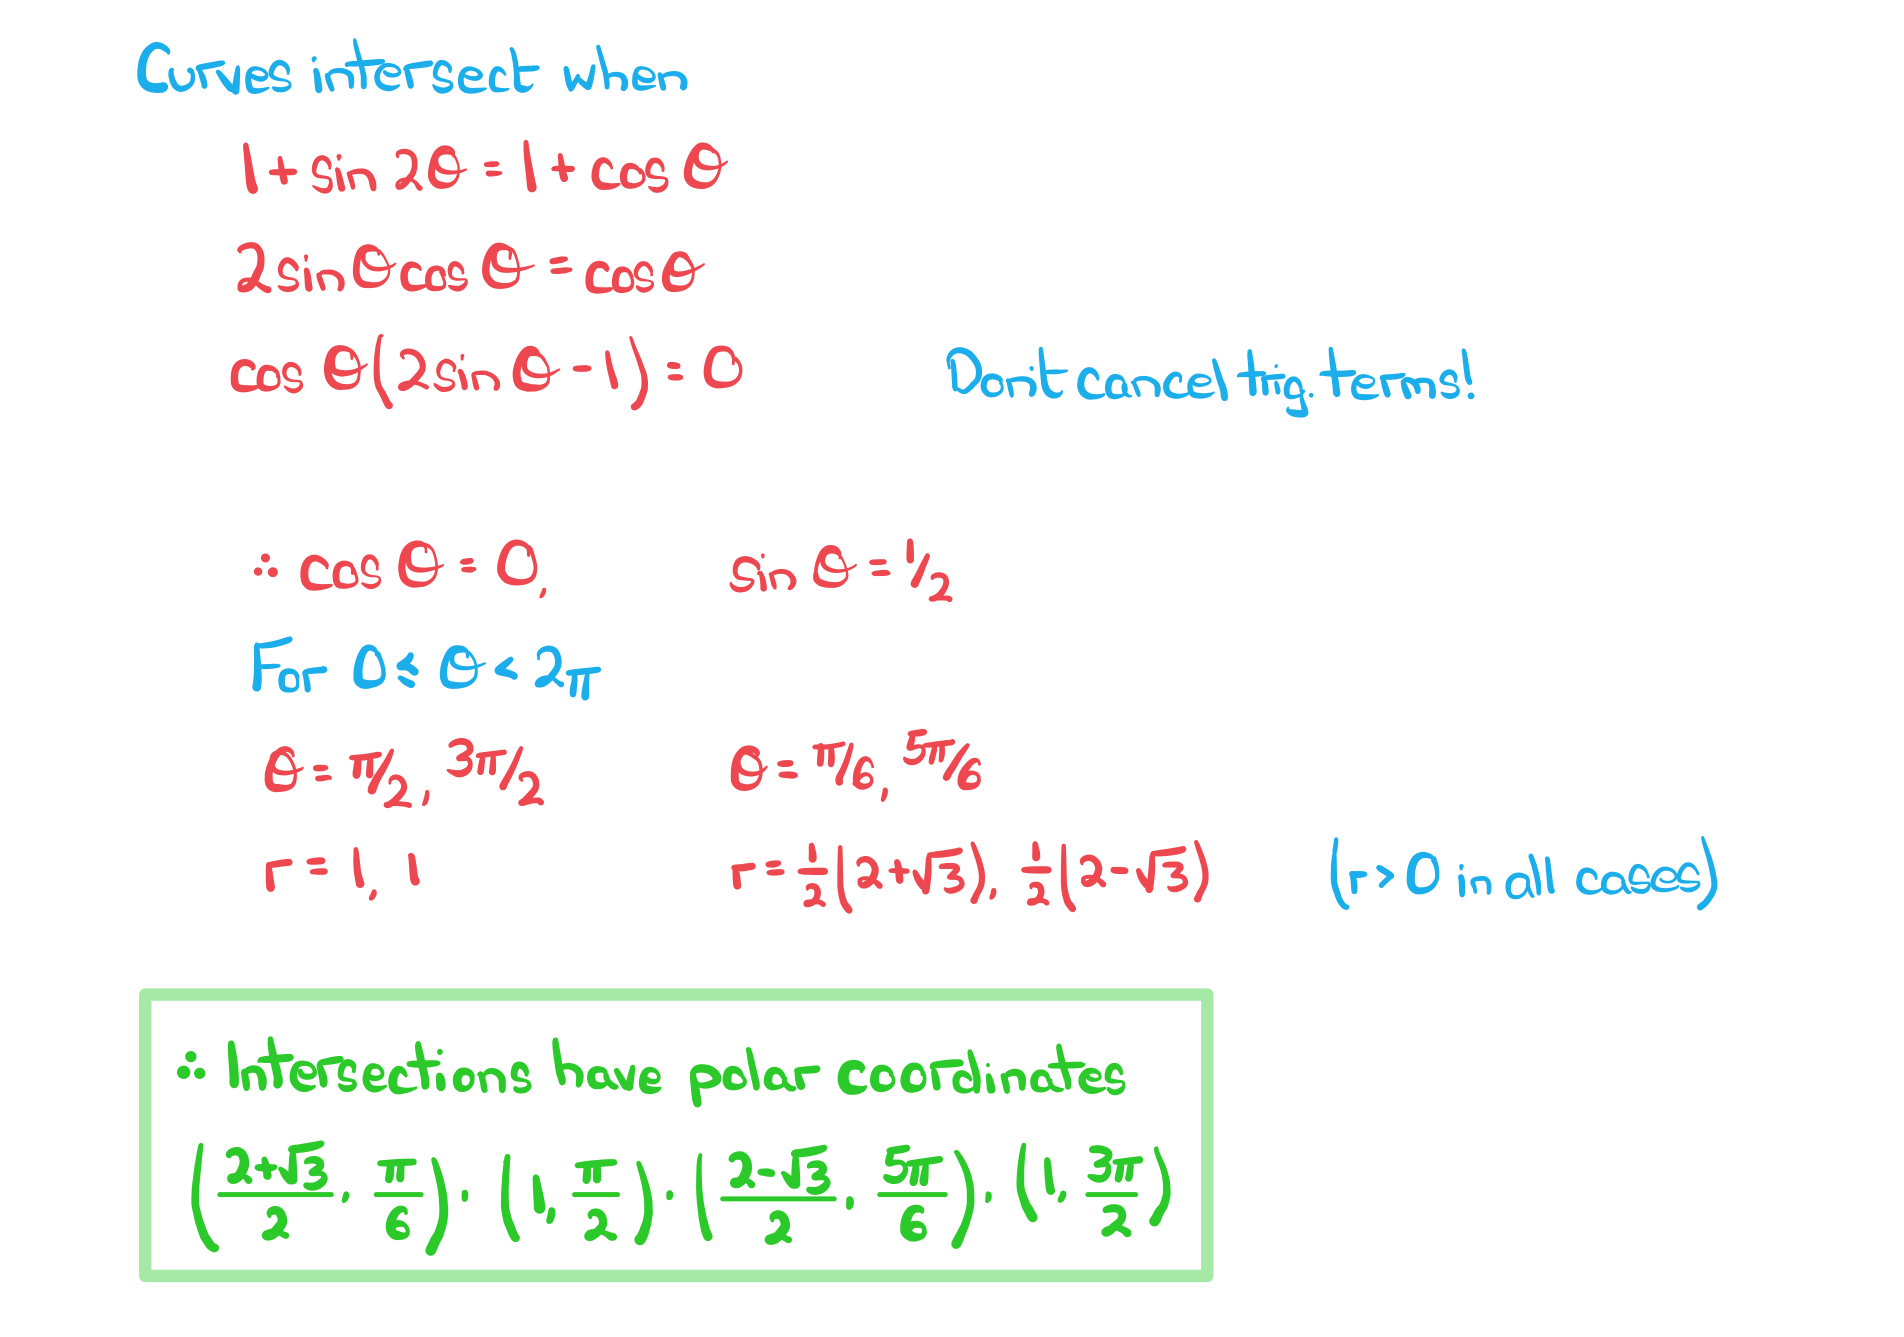 Curves intersect when
1 + sin 2θ = 1 + cos θ
2 sin θ cos θ = cos θ
cos θ (2 sin θ - 1) = 0 Don't cancel trig. terms!
∴ cos θ = 0, sin θ = 1/2
For 0 ≤ θ < 2π
θ = π/2, 3π/2 θ = π/6, 5π/6
r = 1, 1 r = 1/2 (2 + √3), 1/2 (2 - √3) (r > 0 in all cases)
∴ Intersections have polar coordinates
((2 + √3)/2, π/6), (1, π/2), ((2 - √3)/2, 5π/6), (1, 3π/2)